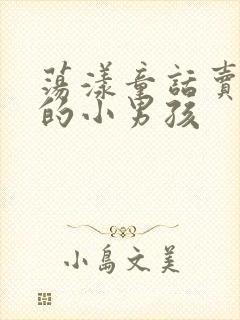 蕩漾童話賣
的小男孩
小島文美